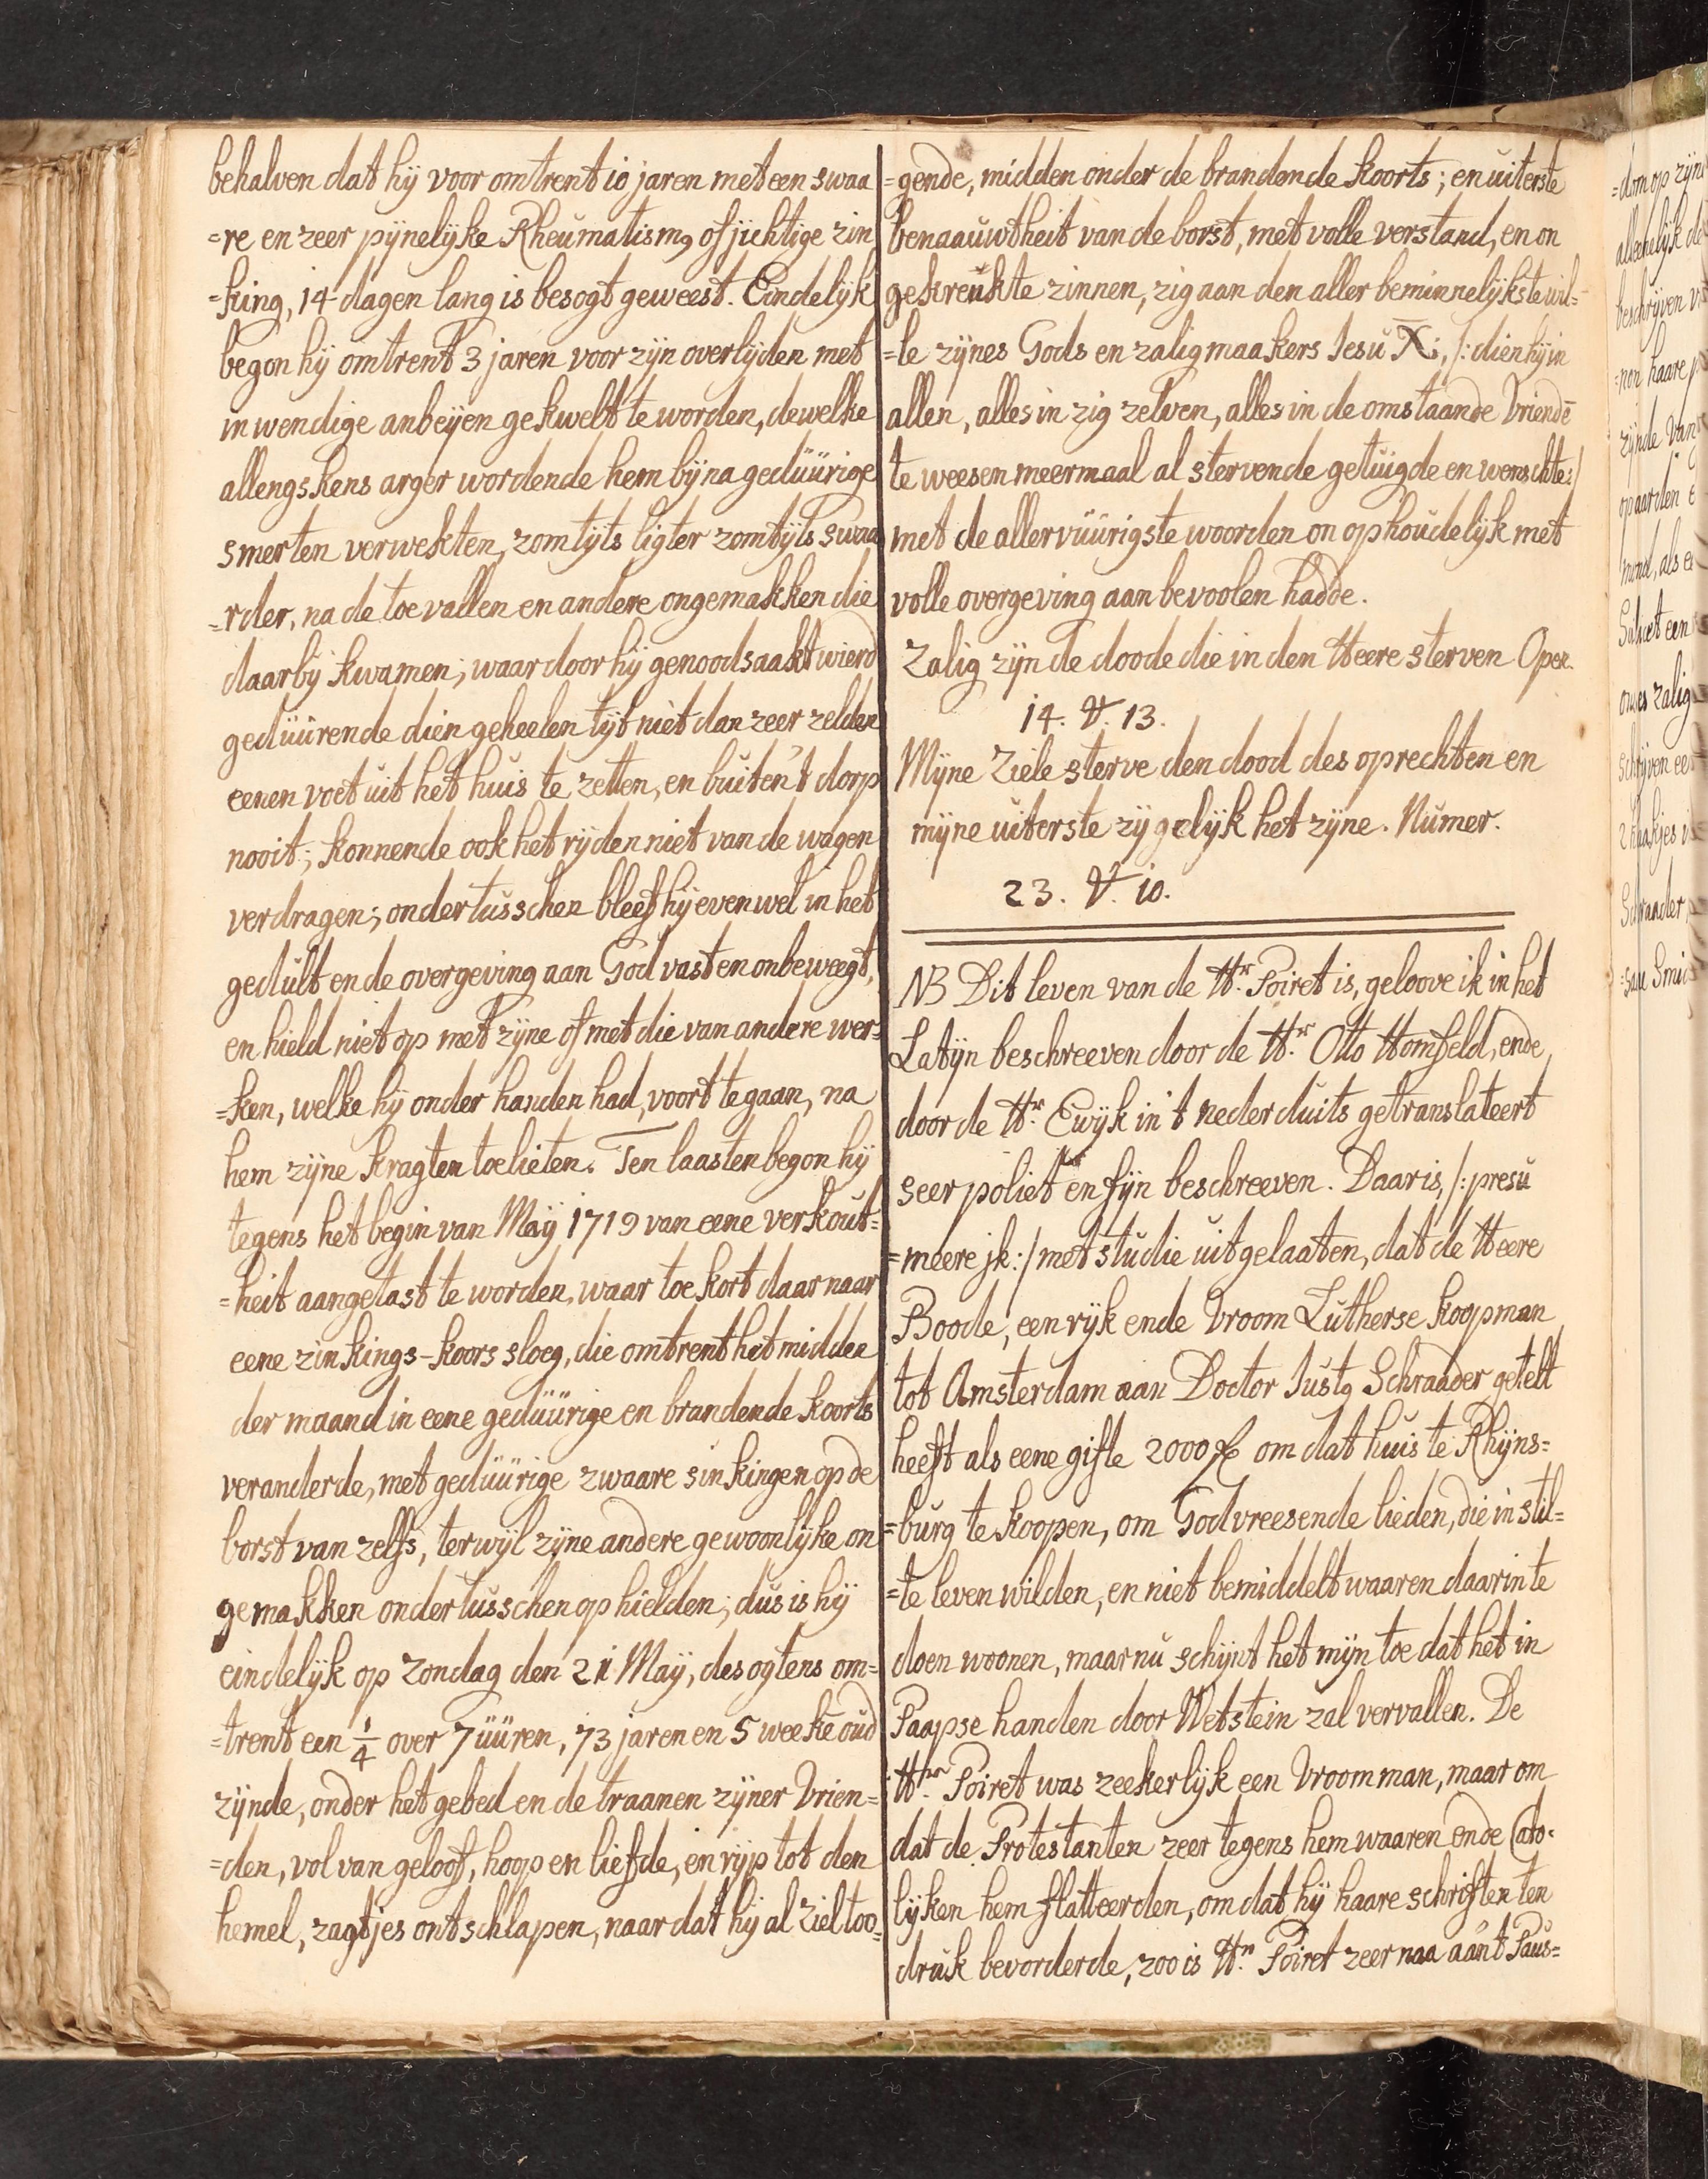 behalven dat hij voor omtrent 10 jaren met een swaa
=re en zeer pijnelijke Rheumatism9 of jichtige zin
=king, 14 dagen lang is besogt geweest. Eindelijk
begon hij omtrent 3 jaren voor zijn overlijden met
inwendige anbeijen gekwelt te worden, dewelke
allengskens arger wordende hem bijna gedüürige
smerten verwekten, zomtijts ligter zomtijts swaa
=rder, na de toevallen en andere ongemakken die
daarbij kwamen; waardoor hij genoodsaakt wierd
gedüürende dien geheelen tijt niet dan zeer zelden
eenen voet uit het huis te zetten, en buiten 't dorp
nooit; konnende ook het rijden niet van de wagen
verdragen; ondertusschen bleef hij evenwel in het
gedult ende overgeving aan God vast en onbeweegt,
en hield niet op met zijne of met die van andere wer=
=ken, welke hij onder handen had, voort te gaan, na
hem zijne kragten toelieten. Ten laasten begon hij
tegens het begin van Maÿ 1719 van eene verkout=
=heit aangetast te worden, waar toe kort daar naar
eene zinkings-koors sloeg, die omtrent het midden
der maand in eene gedüürige en brandende koorts
veranderde, met gedüürige zwaare sinkingen op de
borst van zelfs, terwijl zijne andere gewoonlijke on
gemakken ondertusschen ophielden; dus is hij
eindelijk op zondag den 21 Maÿ, des ogtens om=
=trent een 1/4 over 7 üüren, 73 jaren en 5 weeke oud
zijnde, onder het gebed en de traanen zijner Vrien=
=den, vol van geloof, hoop en liefde, en rijp tot den
hemel, zagtjes ontschlapen, naar dat hij al zieltoo=
=gende, midden onder de brandende koorts; en uiterste
benaauwtheit van de borst, met volle verstand, en on
gekreukte zinnen, zig aan den aller beminnelijkste wil=
=le zijnes Gods en zaligmaakers Jesu X̅i, /: dien hij in
allen, alles in zig zelven, alles in de omstaande Vriendē
te weesen meermaal al stervende getuigde en wenschte:/
met de allervüürigste woorden onophoudelijk met
volle overgeving aanbevoolen hadde.
Zalig zijn de doode die in den Heere sterven Open.
14. V. 13.
Mijne Ziele sterve den dood des oprechten en
mijne uiterste zij gelijk het zijne. Numer.
23. V. 10.
NB Dit leven van de Hr. Poiret is, geloove ik in het
Latijn beschreeven door de Hr. Otto Homfeld, ende
door de Hr. Ewijk in 't nederduits getranslateert
seer poliet en fijn beschreeven. Daar is, /: presu
=meere jk :/ met studie uitgelaaten, dat de Heere
Boode, een rijk ende Vroom Lutherse koopman
tot Amsterdam aan Doctor Just9 Schraader getelt
heeft als eene gifte 2000 fl om dat huis te Rhijns=
=burg te koopen, om Godvreesende lieden, die in stil=
=te leven wilden, en niet bemiddelt waaren daarin te
doen woonen, maar nu schijnt het mijn toe dat het in
Paapse handen door Wetstein zal vervallen. De
Hr. Poiret was zeekerlijk een Vroom man, maar om
dat de Protestanten zeer tegens hem waaren ende Cato=
lijken hem flatteerden, om dat hij haare schriften ten
druk bevorderde, zoo is Hr. Poiret zeer naa aan 't Paus=